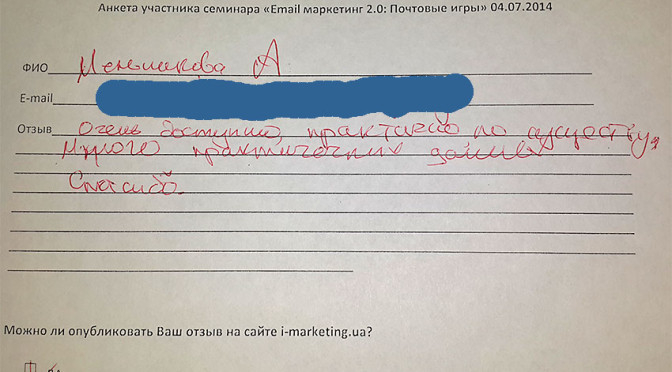 Анкета участника семинара «Email маркетинг 2.0: Почтовые игры» 04.07.2014
ФИО Меньшикова А
E-mail
Отзыв Очень доступно, практично по существу,
Много практических данных
Спасибо.
Можно ли опубликовать Ваш отзыв на сайте i-marketing.ua?